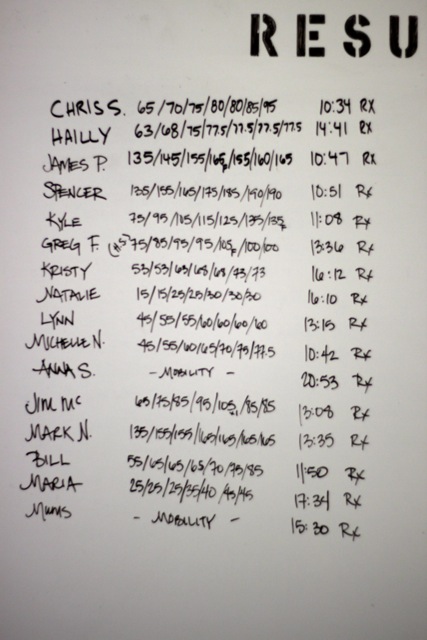 RESU
CHRIS S. 65/70/75/80/80/85/95 10:34 RX
HAILLY 63/68/75/77.5/77.5/77.5/77.5 14:41 RX
JAMES P. 135/145/155/165F/155/160/165 10:47 RX
SPENCER 135/155/165/175/185/190/190 10:51 Rx
KYLE 75/95/105/115/125/135/135F 11:08 Rx
GREG F. 75/85/95/95/105F/100/100 13:36 Rx
KRISTY 53/53/63/68/68/73/73 16:12 Rx
NATALIE 15/15/25/25/30/30/30 16:10 Rx
LYNN 45/55/55/60/60/60/60 13:15 Rx
MICHELLE N. 45/55/60/65/70/75/77.5 10:42 Rx
ANNA S. - MOBILITY - 20:53 Rx
JIM MC 65/75/85/95/105/85/85 13:08 Rx
MARK N. 135/155/155/165/165/165/165 13:35 Rx
BILL 55/65/65/65/70/75/85 11:50 Rx
MARIA 25/25/25/35/40/45/45 17:34 Rx
MUMS - MOBILITY - 15:30 Rx